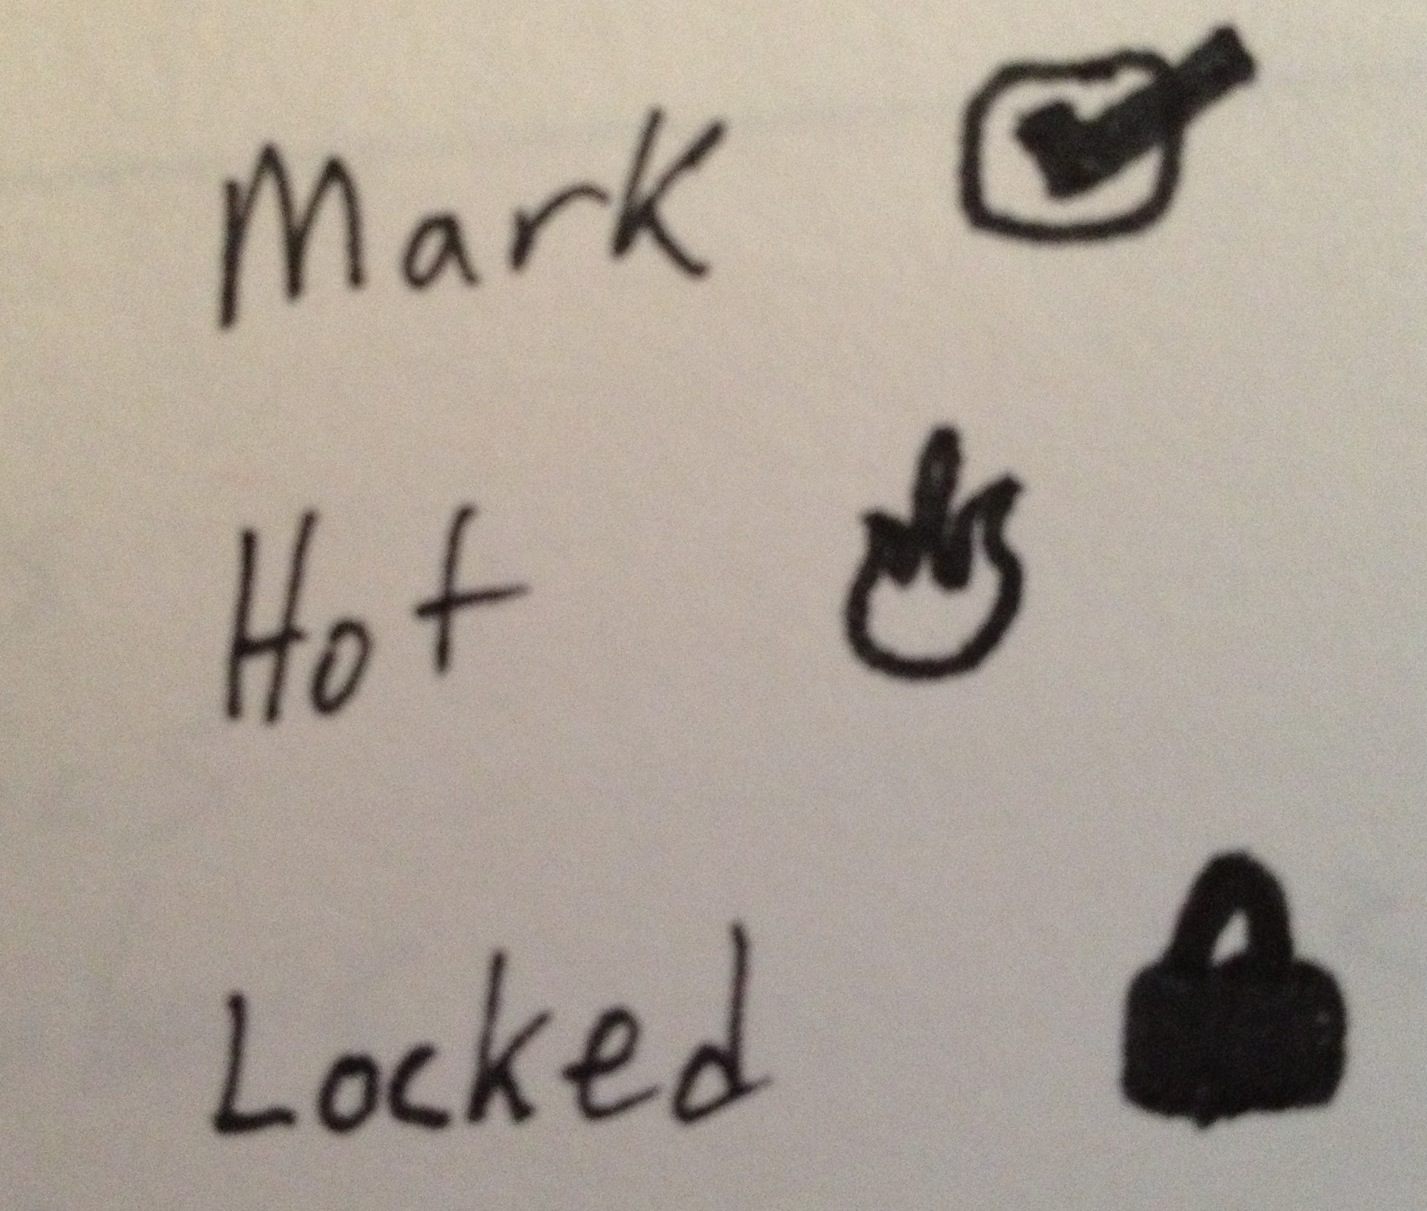 Mark
Hot
Locked